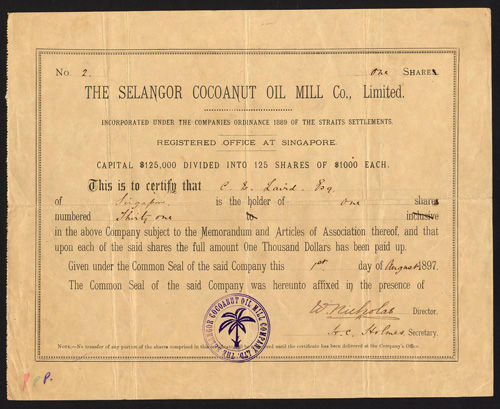 No. 2. one Share
THE SELANGOR COCOANUT OIL MILL Co., Limited.
INCORPORATED UNDER THE COMPANIES ORDINANCE 1889 OF THE STRAITS SETTLEMENTS.
REGISTERED OFFICE AT SINGAPORE.
CAPITAL $125,000 DIVIDED INTO 125 SHARES OF $1000 EACH.
This is to certify that C. E. Laird Esq
of Singapore is the holder of one share
numbered Thirty one to inclusive
in the above Company subject to the Memorandum and Articles of Association thereof, and that
upon each of the said shares the full amount One Thousand Dollars has been paid up.
Given under the Common Seal of the said Company this 1st day of August 1897.
The Common Seal of the said Company was hereunto affixed in the presence of
W Nicholas Director.
H. C. Holmes, Secretary.
THE SELANGOR COCOANUT OIL MILL COMPANY LTD.
NOTE.—No transfer of any portion of the shares comprised in this until the certificate has been delivered at the Company's Office.
P P.